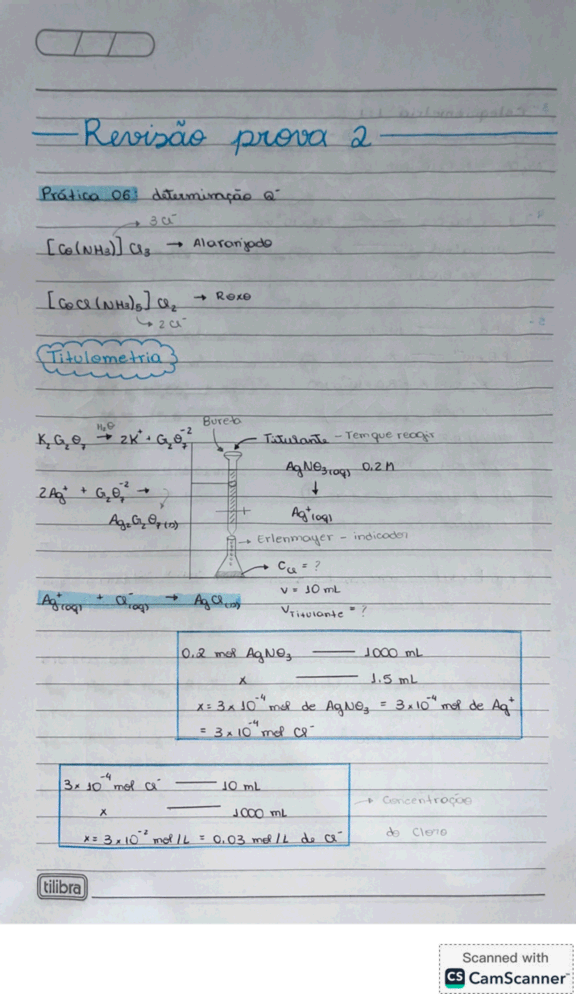 Revisão prova 2
Prática 06: determinação Cl⁻
→ 3 Cl⁻
[Co(NH₃)] Cl₃ → Alaranjado
[CoCl(NH₃)₅] Cl₂ → Roxo
↳ 2 Cl⁻
Titulometria
K₂Cr₂O₇ →(H₂O) 2K⁺ + Cr₂O₇⁻²
Bureta
Titulante - Tem que reagir
AgNO₃(aq) 0.2 M
↓
Ag⁺(aq)
2Ag⁺ + Cr₂O₇⁻² →
Ag₂Cr₂O₇(s)
→ Erlenmayer - indicador
→ C Cl = ?
V = 10 mL
V Titulante = ?
Ag⁺(aq) + Cl⁻(aq) → AgCl(s)
0.2 mol AgNO₃ —— 1000 mL
x —— 1.5 mL
x = 3 x 10⁻⁴ mol de AgNO₃ = 3 x 10⁻⁴ mol de Ag⁺
= 3 x 10⁻⁴ mol Cl⁻
3 x 10⁻⁴ mol Cl⁻ —— 10 mL
x —— 1000 mL
x = 3 x 10⁻² mol/L = 0.03 mol/L de Cl⁻
→ Concentração
do Cloro
tilibra
Scanned with
CS CamScanner